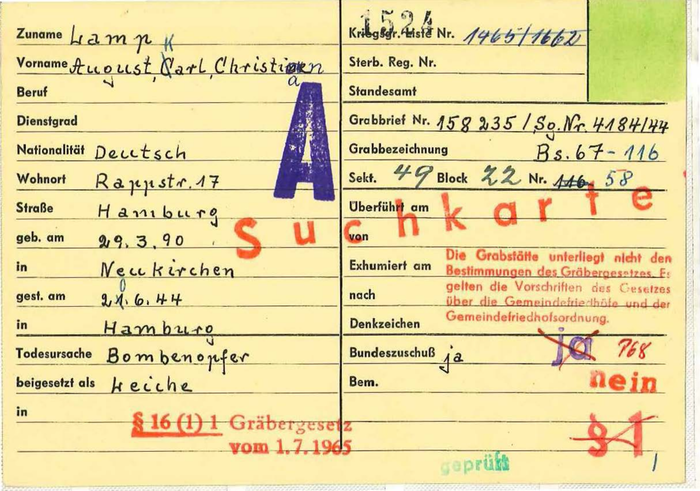 1524
Zuname Lamp
Vorname August, Karl, Christian
Beruf
Dienstgrad
Nationalität Deutsch
Wohnort Rappstr. 17
Straße Hamburg
geb. am 29.3.90
in Neukirchen
gest. am 20.6.44
in Hamburg
Todesursache Bombenopfer
beigesetzt als Leiche
in
§ 16 (1) 1 Gräbergesetz
vom 1.7.1965
A
Suchkartei
Kriegsgr. Liste Nr. 1465/1662
Sterb. Reg. Nr.
Standesamt
Grabbrief Nr. 158 235 / Sg. Nr. 4184/44
Grabbezeichnung Bs. 67-116
Sekt. 49 Block 22 Nr. 116 58
Überführt am
von
Exhumiert am
nach
Denkzeichen
Die Grabstätte unterliegt nicht den
Bestimmungen des Gräbergesetzes. Es
gelten die Vorschriften des Gesetzes
über die Gemeindefriedhöfe und der
Gemeindefriedhofsordnung.
Bundeszuschuß ja ja 768
Bem. nein
§ 1
geprüft
1